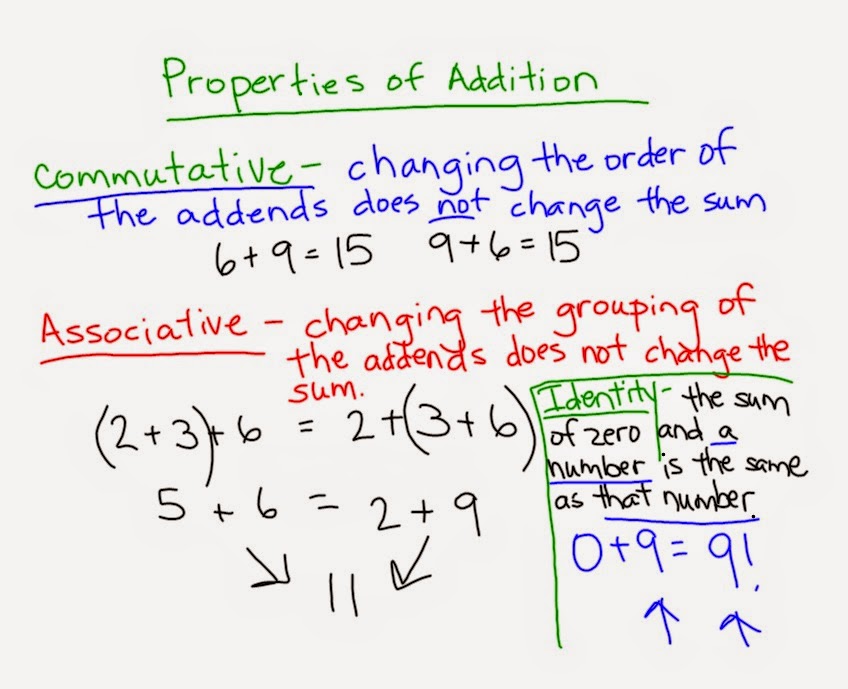 Properties of Addition
Commutative - changing the order of
the addends does not change the sum
6 + 9 = 15 9 + 6 = 15
Associative - changing the grouping of
the addends does not change the
sum.
(2 + 3) + 6 = 2 + (3 + 6)
5 + 6 = 2 + 9
11
Identity - the sum
of zero and a
number is the same
as that number.
0 + 9 = 9!